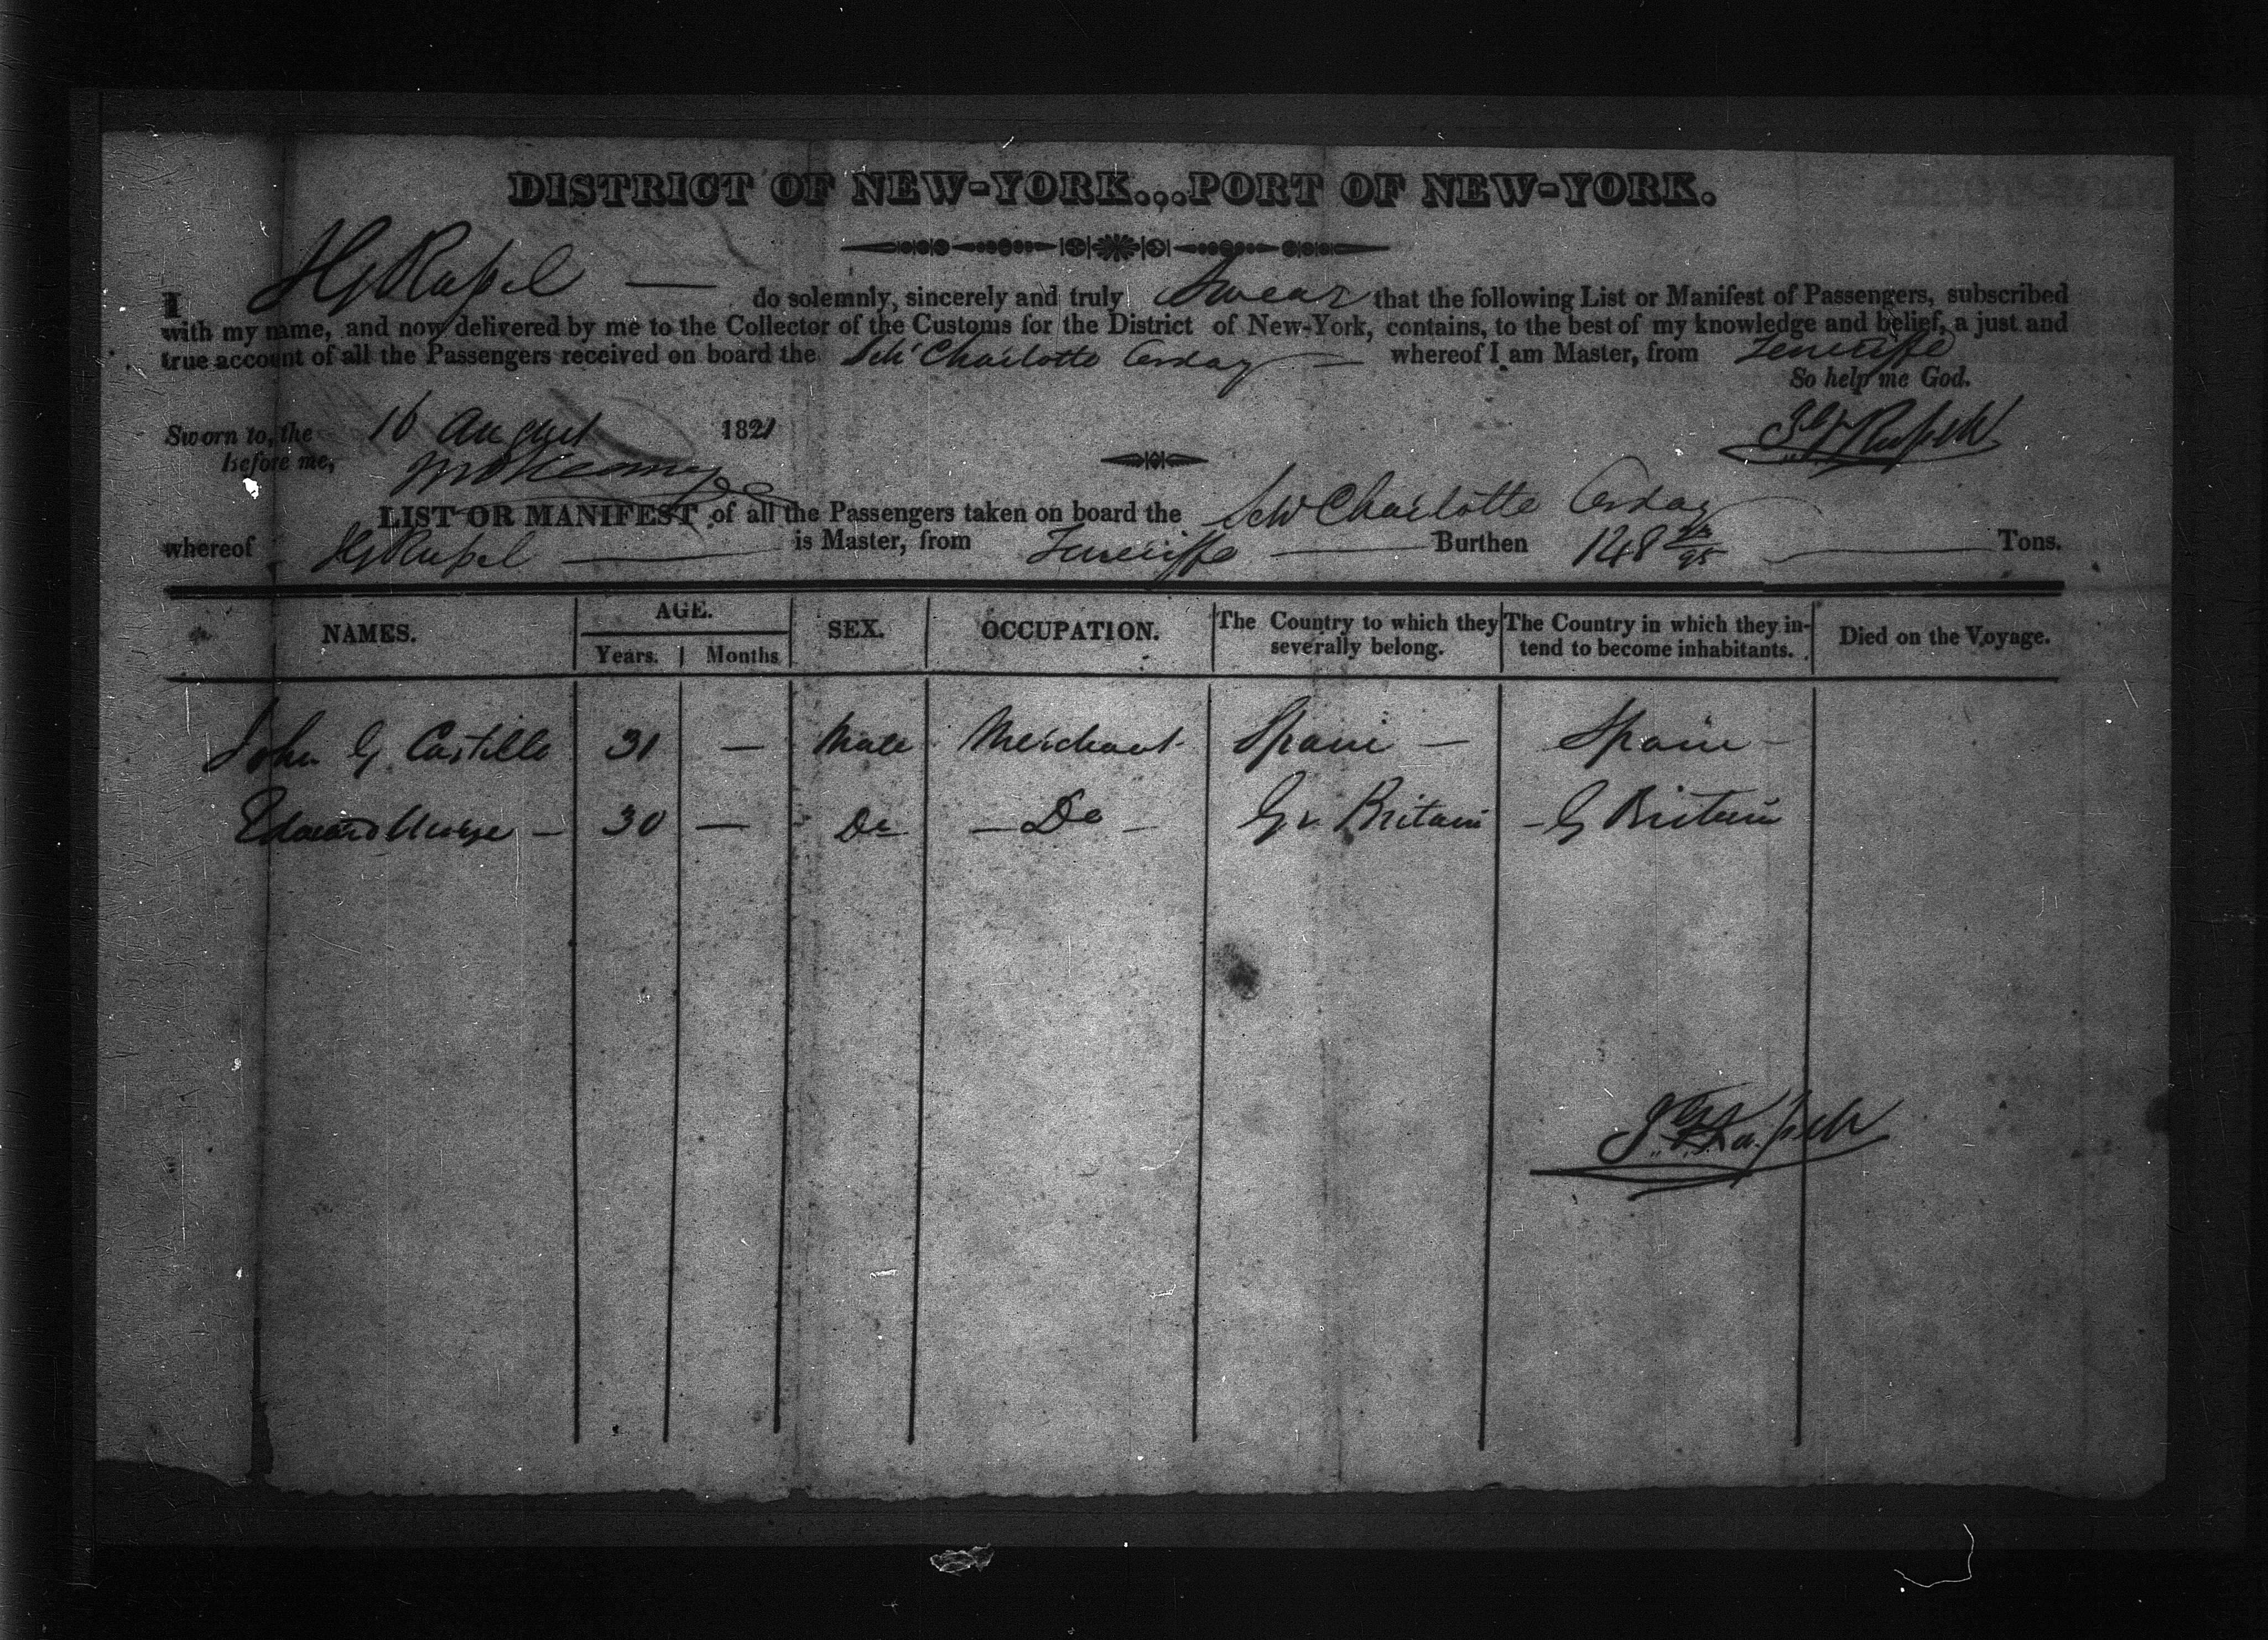 DISTRICT OF NEW-YORK...PORT OF NEW-YORK.
I H G Russel — do solemnly, sincerely and truly Swear that the following List or Manifest of Passengers, subscribed
with my name, and now delivered by me to the Collector of the Customs for the District of New-York, contains, to the best of my knowledge and belief, a just and
true account of all the Passengers received on board the Schr Charlotte — whereof I am Master, from Teneriffe
So help me God.
Sworn to, the 16 August 1821
before me,
LIST OR MANIFEST of all the Passengers taken on board the Schr Charlotte
whereof H G Russel — is Master, from Teneriffe — Burthen 148 /95 — Tons.
NAMES. AGE. SEX. OCCUPATION. The Country to which they severally belong. The Country in which they intend to become inhabitants. Died on the Voyage.
Years. Months
John G. Castillo 31 — Male Merchant Spain — Spain —
Edward — 30 — Do — Do — G Britain — G Britain